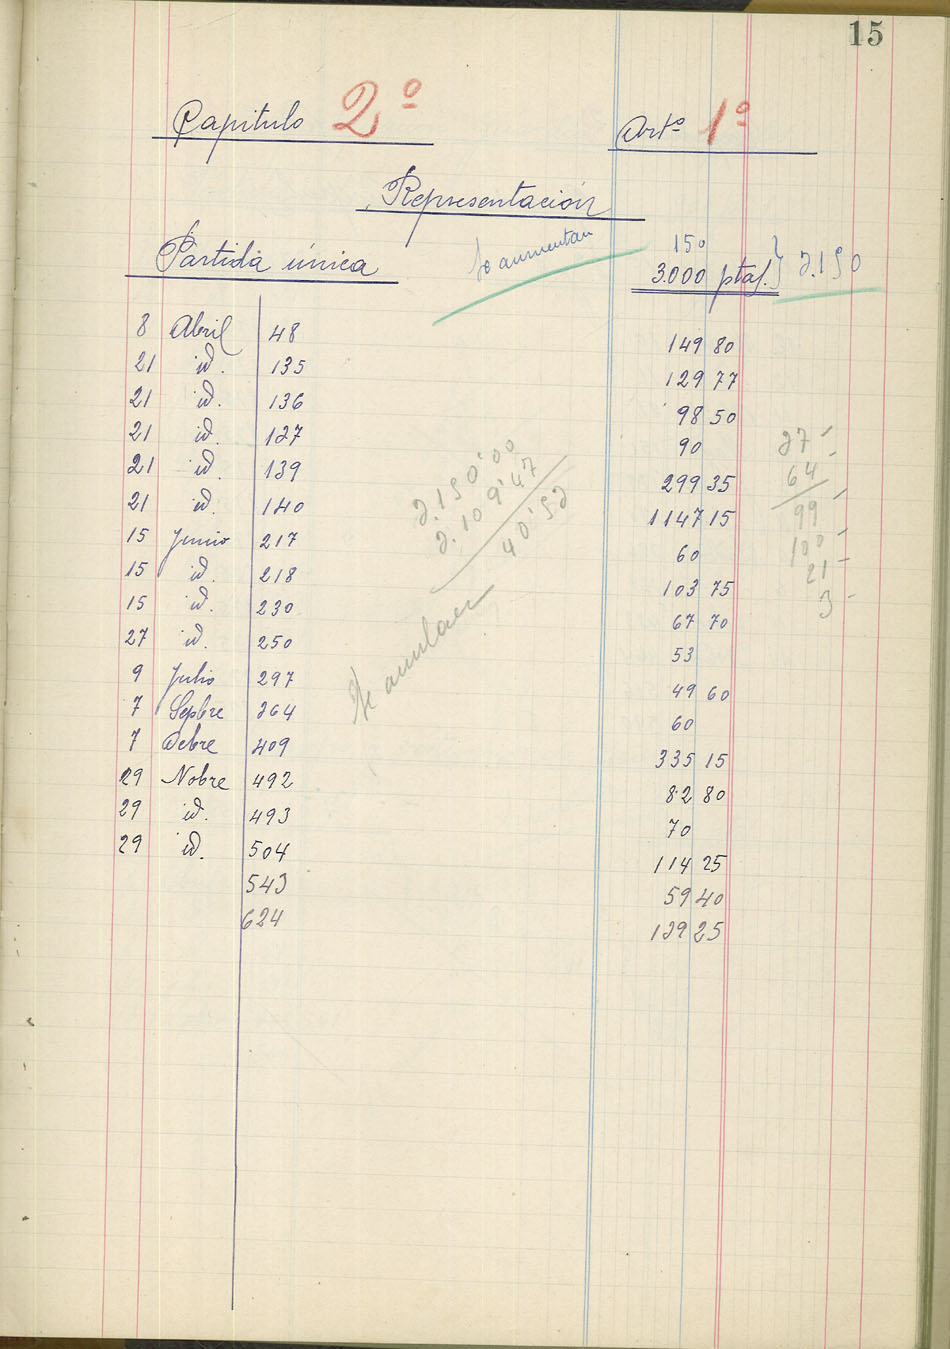 15
Capitulo 2º Artº 1º
Representación
Partida única Se aumentan 150
3.000 ptas. } 3.150
8 Abril 48 149 80
21 id. 135 129 77
21 id. 136 98 50
21 id. 137 90
21 id. 139 299 35
21 id. 140 1147 15
15 Junio 217 60
15 id. 218 103 75
15 id. 230 67 70
27 id. 250 53
9 Julio 297 49 60
7 Sepbre 364 60
7 Octbre 409 335 15
29 Nobre 492 82 80
29 id. 493 70
29 id. 504 114 25
543 59 40
624 139 25
3.150'00
3.109'47
40'53
Se anulan
37
64
99
100
21
3